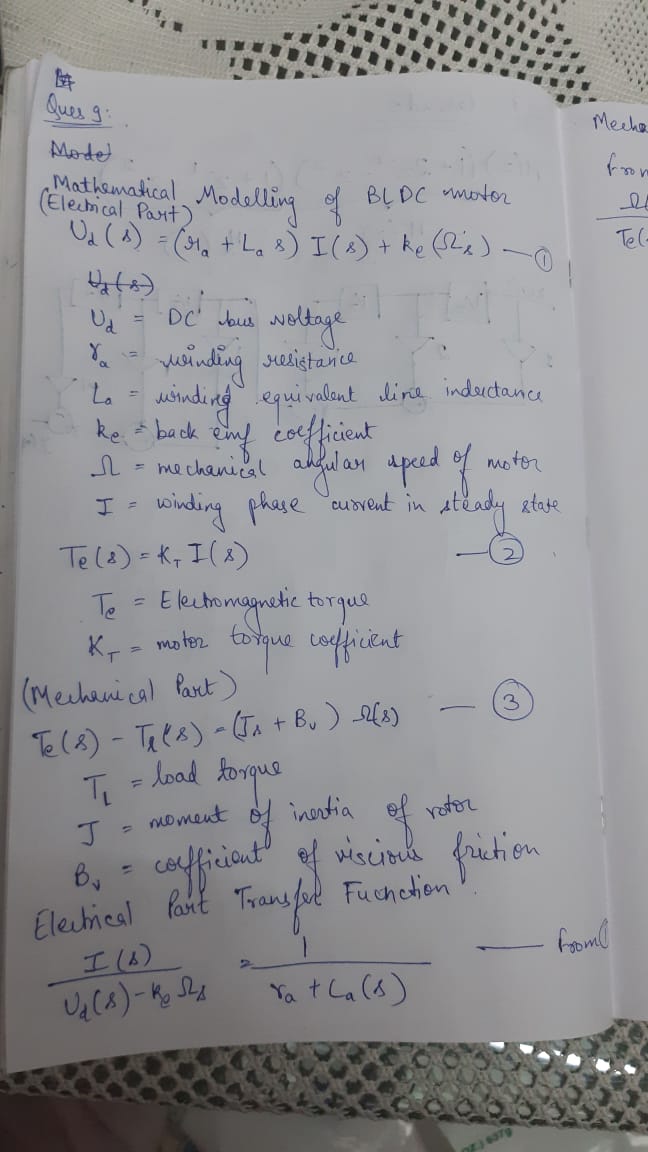 Ques 9:
Model
Mathematical Modelling of BLDC motor
(Electrical Part)
U_d(s) = (r_a + L_a s) I(s) + k_e (Ω s) — ①
U_d(s)
U_d = DC bus voltage
r_a = winding resistance
L_a = winding equivalent line inductance
k_e = back emf coefficient
Ω = mechanical angular speed of motor
I = winding phase current in steady state
T_e(s) = K_T I(s) — ②
T_e = Electromagnetic torque
K_T = motor torque coefficient
(Mechanical Part)
T_e(s) - T_L(s) = (J_s + B_v) Ω(s) — ③
T_L = load torque
J = moment of inertia of rotor
B_v = coefficient of viscious friction
Electrical Part Transfer Fuchction.
I(s) / U_d(s) - k_e Ω_s = 1 / r_a + L_a(s) — from ①
Mecha
from
Ω(
Te(